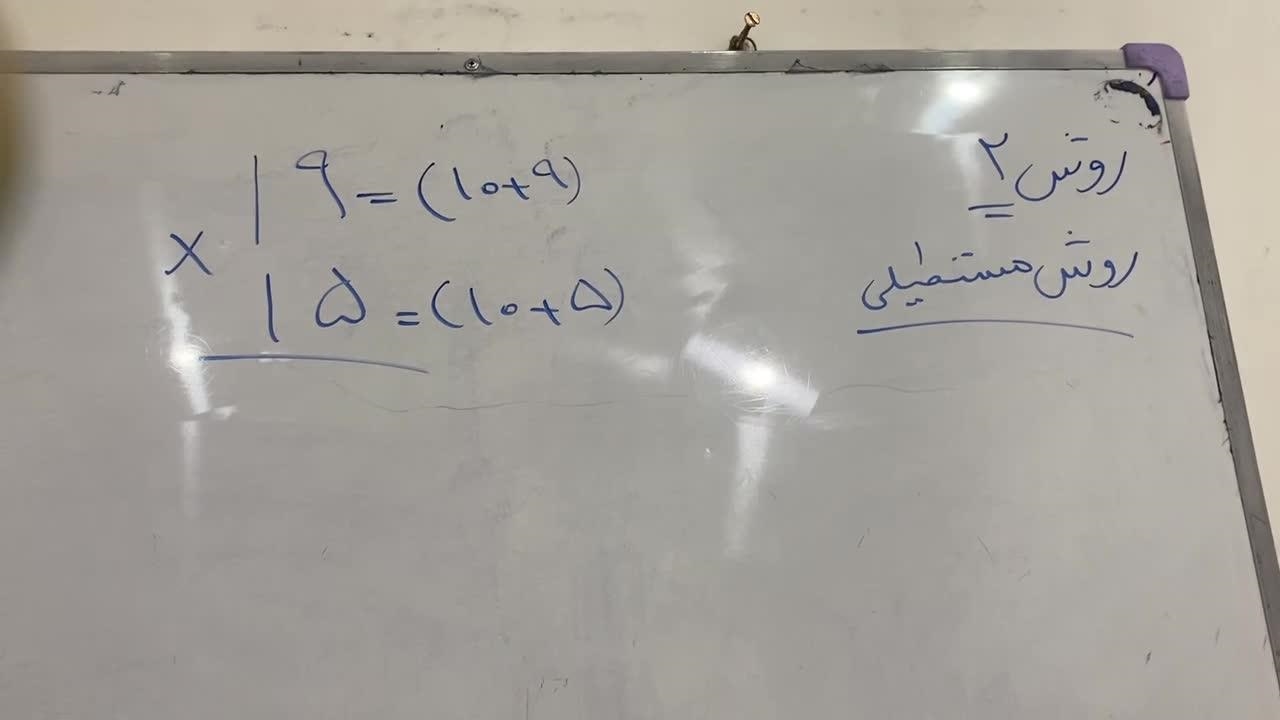 روش ۲
روش مستطیلی
۱۹ = (۱۰+۹)
×
۱۵ = (۱۰+۵)